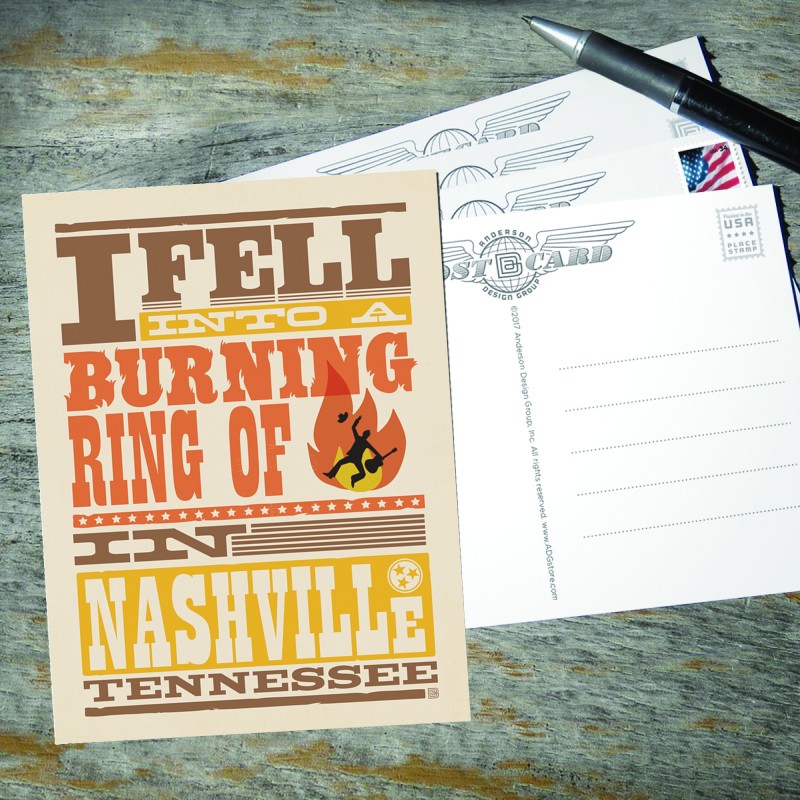 I FELL
INTO A
BURNING
RING OF
IN
NASHVILLE
TENNESSEE
CARD
ANDERSON
POST CARD
DESIGN GROUP
Printed in the
USA
PLACE
STAMP
©2017 Anderson Design Group, Inc. All rights reserved. www.ADGstore.com